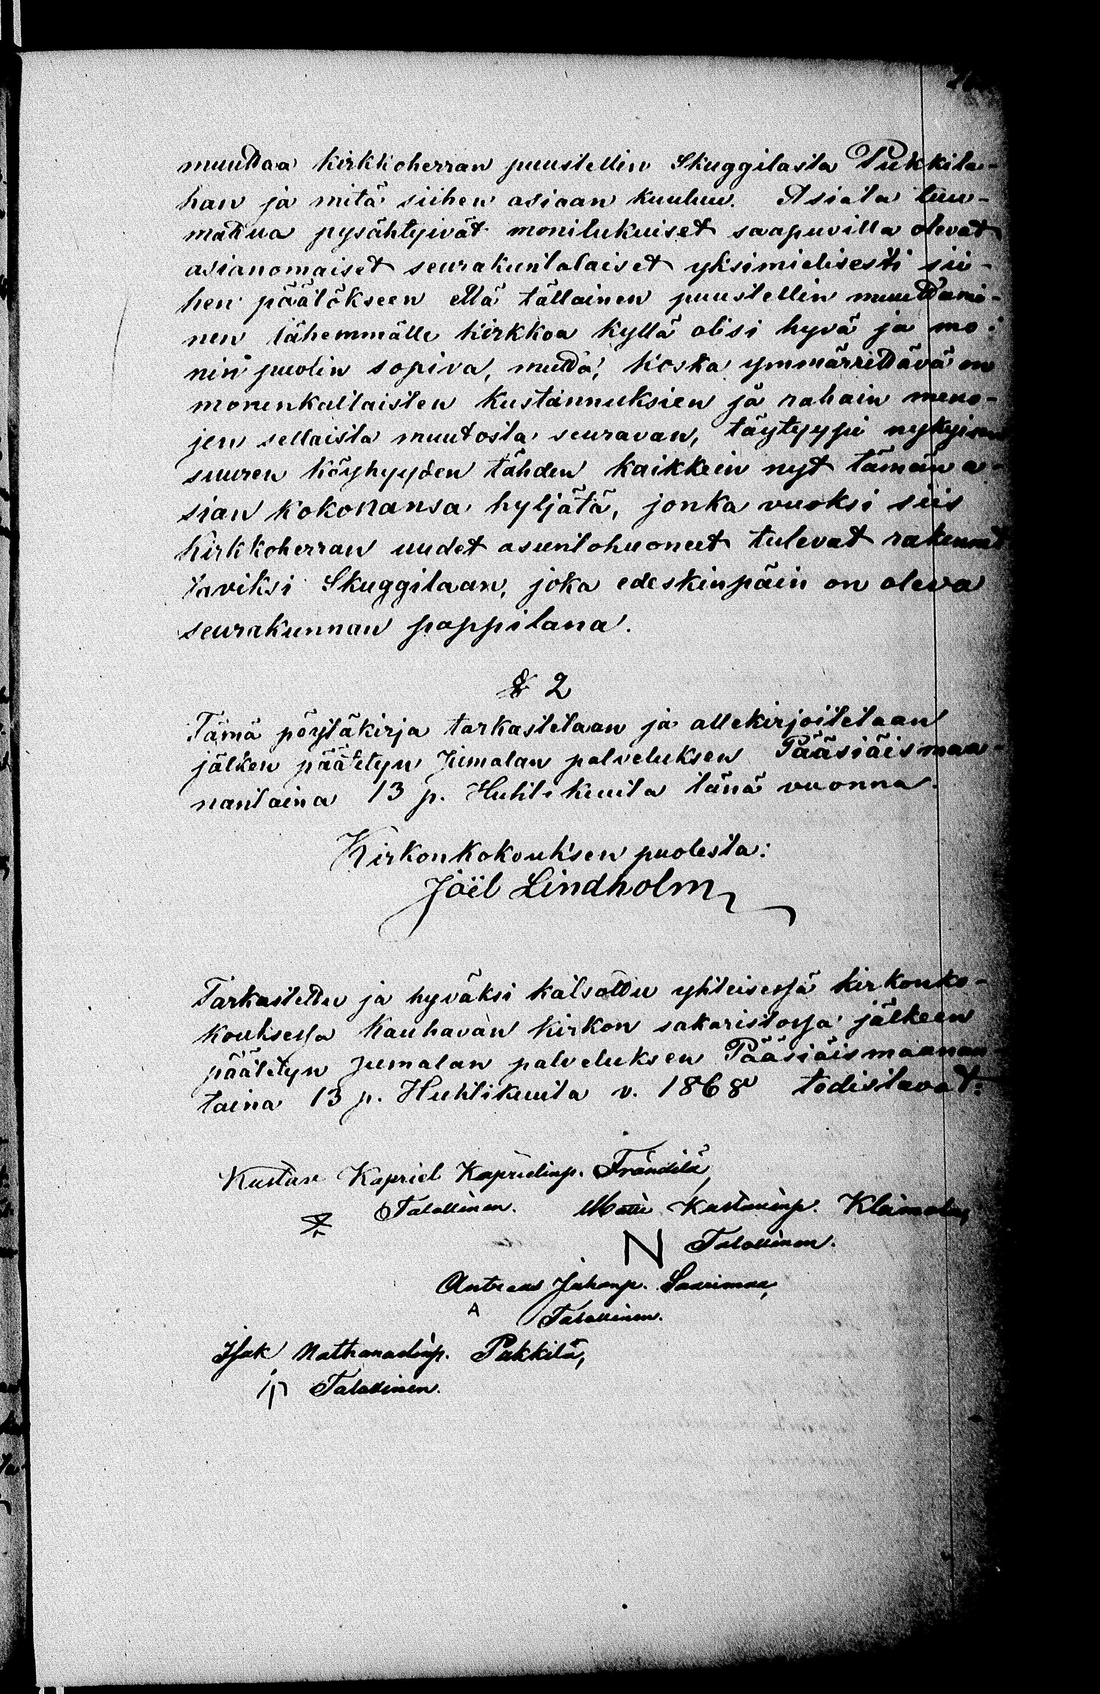 muuttaa kirkkoherran puustellin Skuggilasta Pukkila-
han ja mitä siihen asiaan kuuluu. Asiata tuu-
mattua pysähtyivät monilukuiset saapuvilla olevat
asianomaiset seurakuntalaiset yksimielisesti sii-
hen päätökseen että tällainen puustellin muuttami-
nen lähemmälle kirkkoa kyllä olisi hyvä ja mo-
nin puolin sopiva, mutta, koska ymmärrettävä on
morenkaltaisten kustannuksien ja rahain meno-
jen sellaista muutosta seuravan, täytyypi nykyisen
suuren köyhyyden tähden kaikkein nyt tämän a-
sian kokonansa hyljätä, jonka vuoksi siis
Kirkkoherran uudet asuntohuoneet tulevat rakennet
taviksi Skuggilaan, joka edeskinpäin on oleva
seurakunnan pappilana.
§ 2
Tämä pöytäkirja tarkastetaan ja allekirjoitetaan
jälken päätetyn Jumalan palveluksen Pääsiäismaa-
nantaina 13 p. Huhtikuuta tänä vuonna.
Kirkonkokouksen puolesta:
Joël Lindholm
Tarkastettu ja hyväksi katsottu yhteisessä kirkonko-
kouksessa Kauhavan kirkon sakaristossa jälkeen
päätetyn Jumalan palveluksen Pääsiäismaanan
taina 13 p. Huhtikuuta v. 1868 todistavat:
Kustav Kapriel Kaprielinp. Frändilä,
Talollinen. Matti Kustavinp. Kleimola,
N Talollinen.
Antreas Juhanp. Saarimaa,
A Talollinen.
Isak Nathanaelinp. Pukkila,
Talollinen.